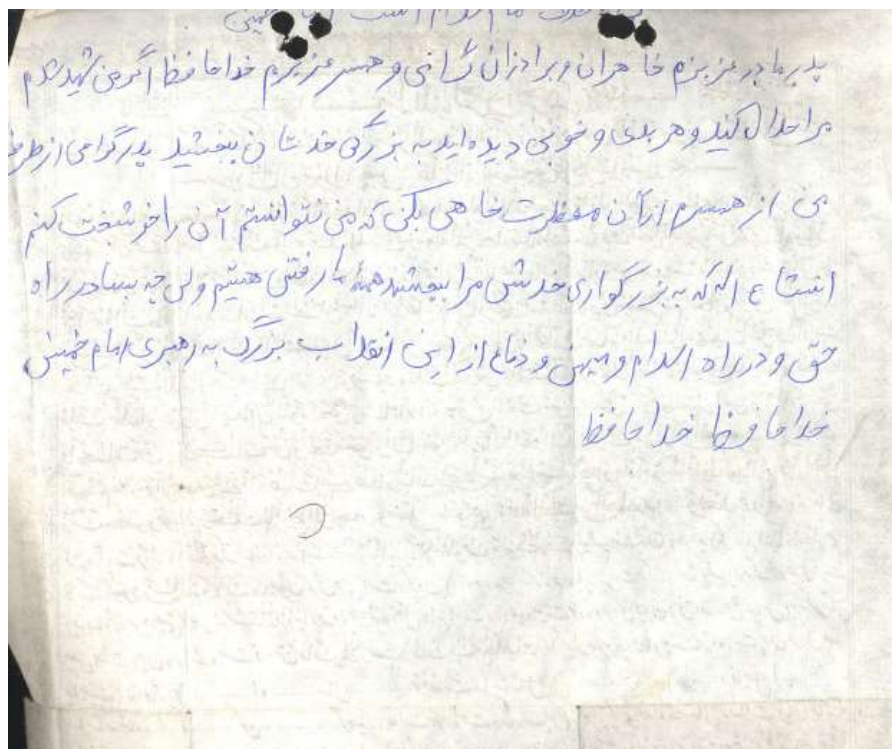 امام خمینی
پدر مادر عزیزم خاهران و برادران گرامی و همسر عزیزم خداحافظ اگر من شهید شدم
مرا حلال کنید و هر بدی و خوبی دیده اید به بزرگی خدتان ببخشید پدر گرامی از طرف
من از همسرم از آن معظرت خاهی بکن که من نتوانستم آن را خوشبخت کنم
انشاء اله که به بزرگواری خدش مرا ببخشد همهٔ ما رفتنی هستیم ولی چه بسا در راه
حق و در راه اسلام و میهن و دفاع از این انقلاب بزرگ به رهبری امام خمینی
خداحافظ خداحافظ